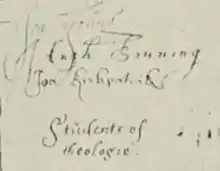 Hugh Binning
Jon Kirkpatrick
Students of
theologie.